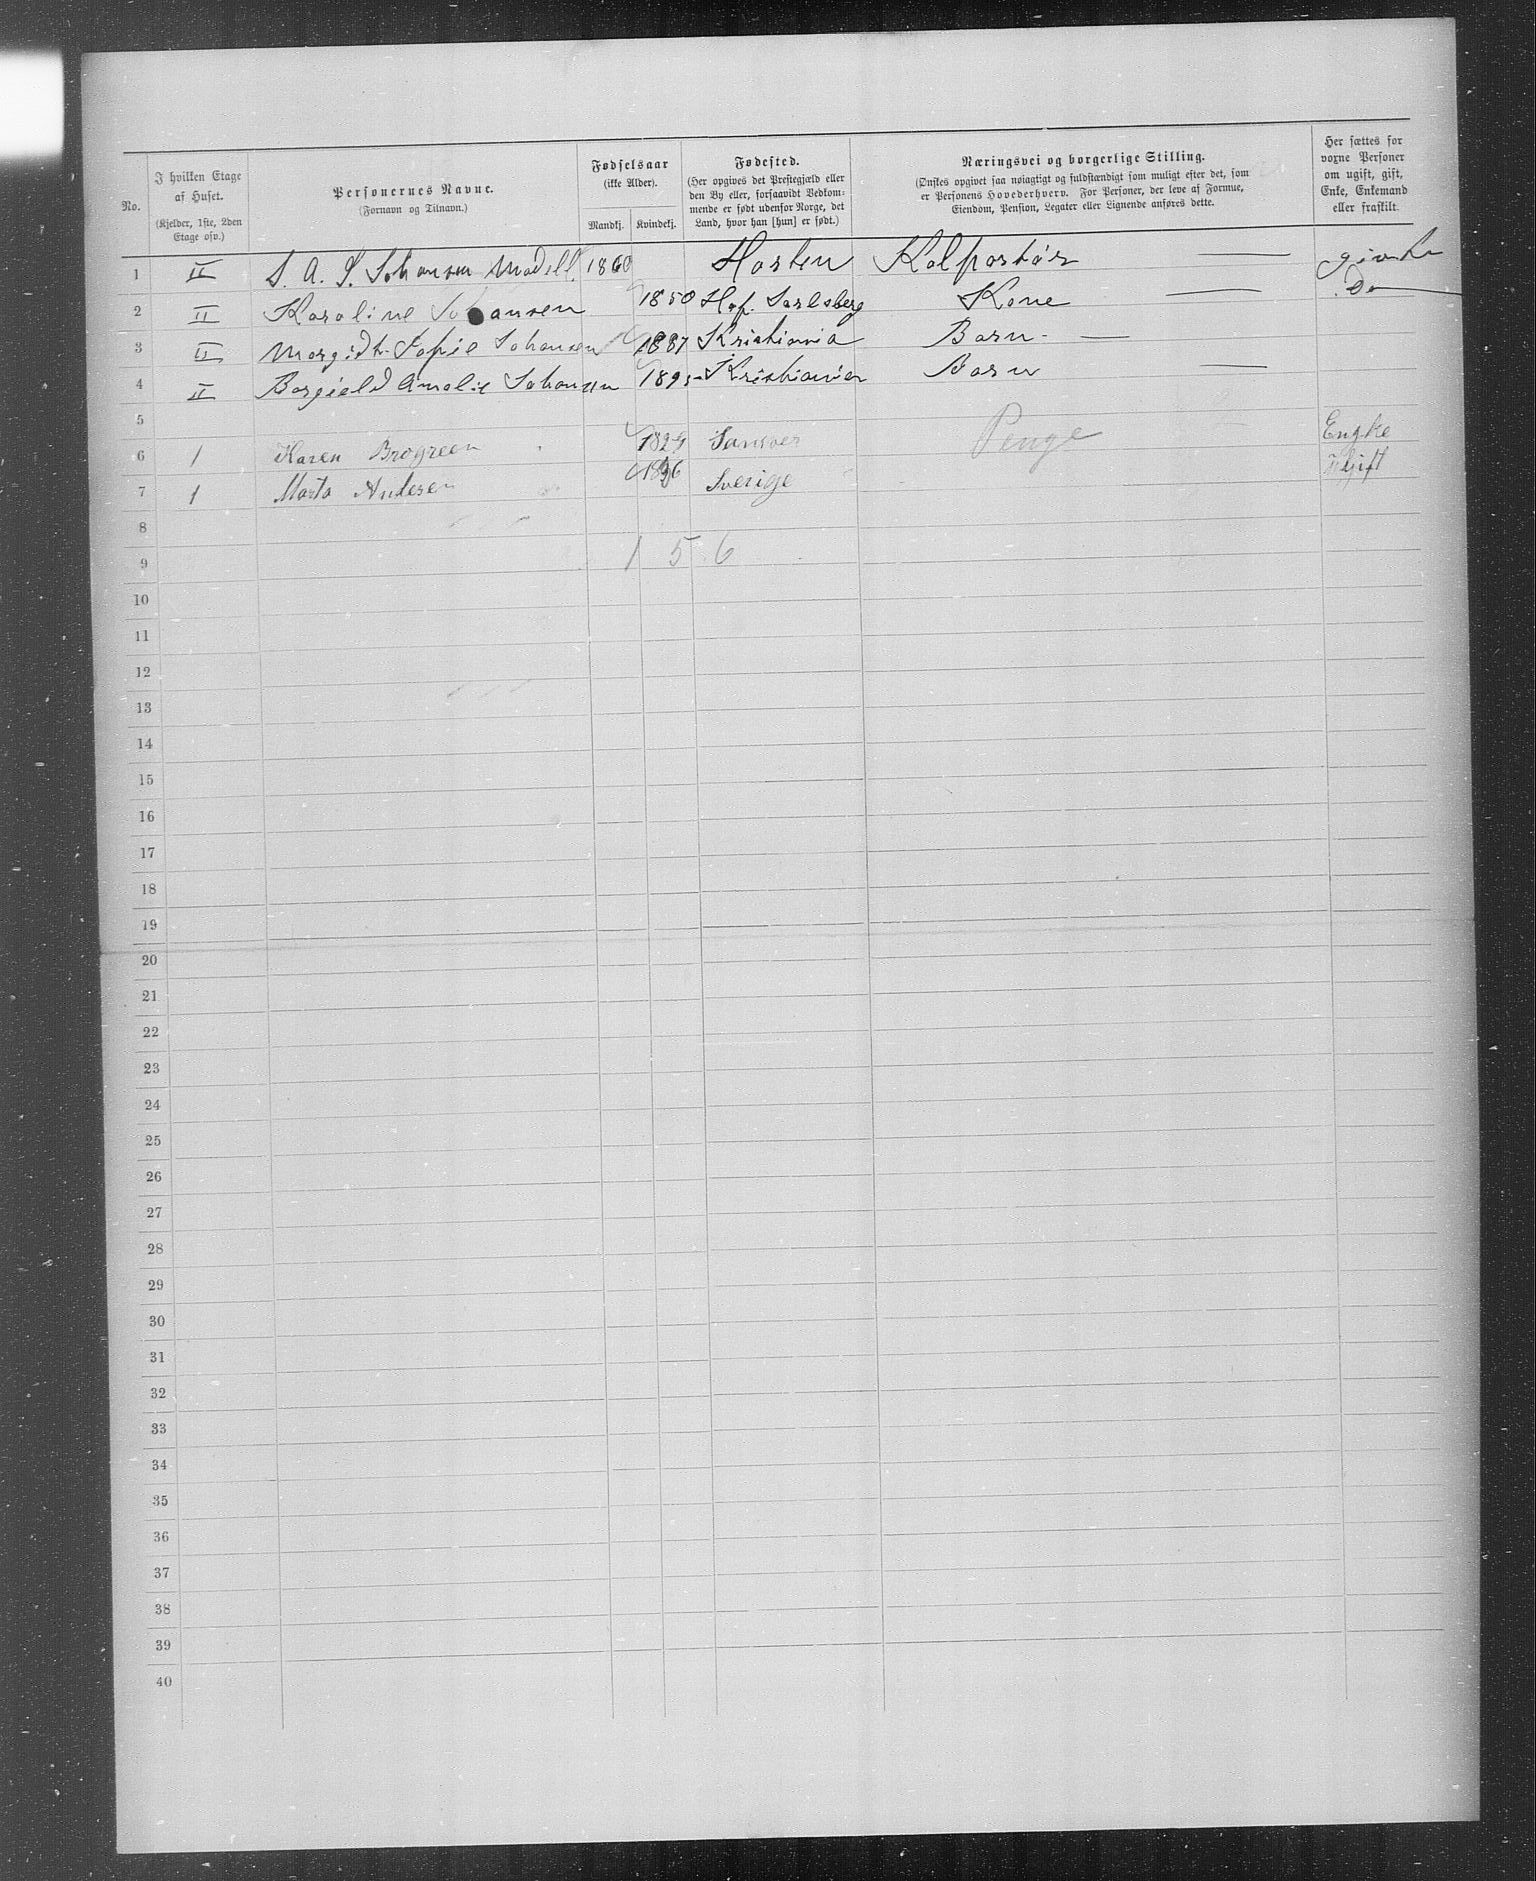 No.
I hvilken Etage af Huset.
(Kjelder, 1ste, 2den Etage osv.)
Personernes Navne.
(Fornavn og Tilnavn.)
Fødselsaar
(ikke Alder).
Mandkj. Kvindekj.
Fødested.
(Her opgives det Prestegjæld eller den By eller, forsaavidt Vedkommende er født udenfor Norge, det Land, hvor han [hun] er født.)
Næringsvei og borgerlige Stilling.
(Ønskes opgivet saa nøiagtigt og fuldstændigt som muligt efter det, som er Personens Hovederhverv. For Personer, der leve af Formue, Eiendom, Pension, Legater eller Lignende anføres dette.
Her sættes for voxne Personer om ugift, gift, Enke, Enkemand eller fraskilt.
1 II S. A. S. Johansen Modell 1860 Horten Kolportør —
2 II Karoline Johansen 1850 Hof. Jarlsberg Kone — Do
3 II Margidt Sofie Johansen 1887 Kristiania Barn —
4 II Borgield Amalie Johansen 1895 Kristiania Barn —
5
6 1 Karen Brogreen 1829 Penge Engke
7 1 Marta Andersen Sverige
8
9 1 5 6
10
11
12
13
14
15
16
17
18
19
20
21
22
23
24
25
26
27
28
29
30
31
32
33
34
35
36
37
38
39
40